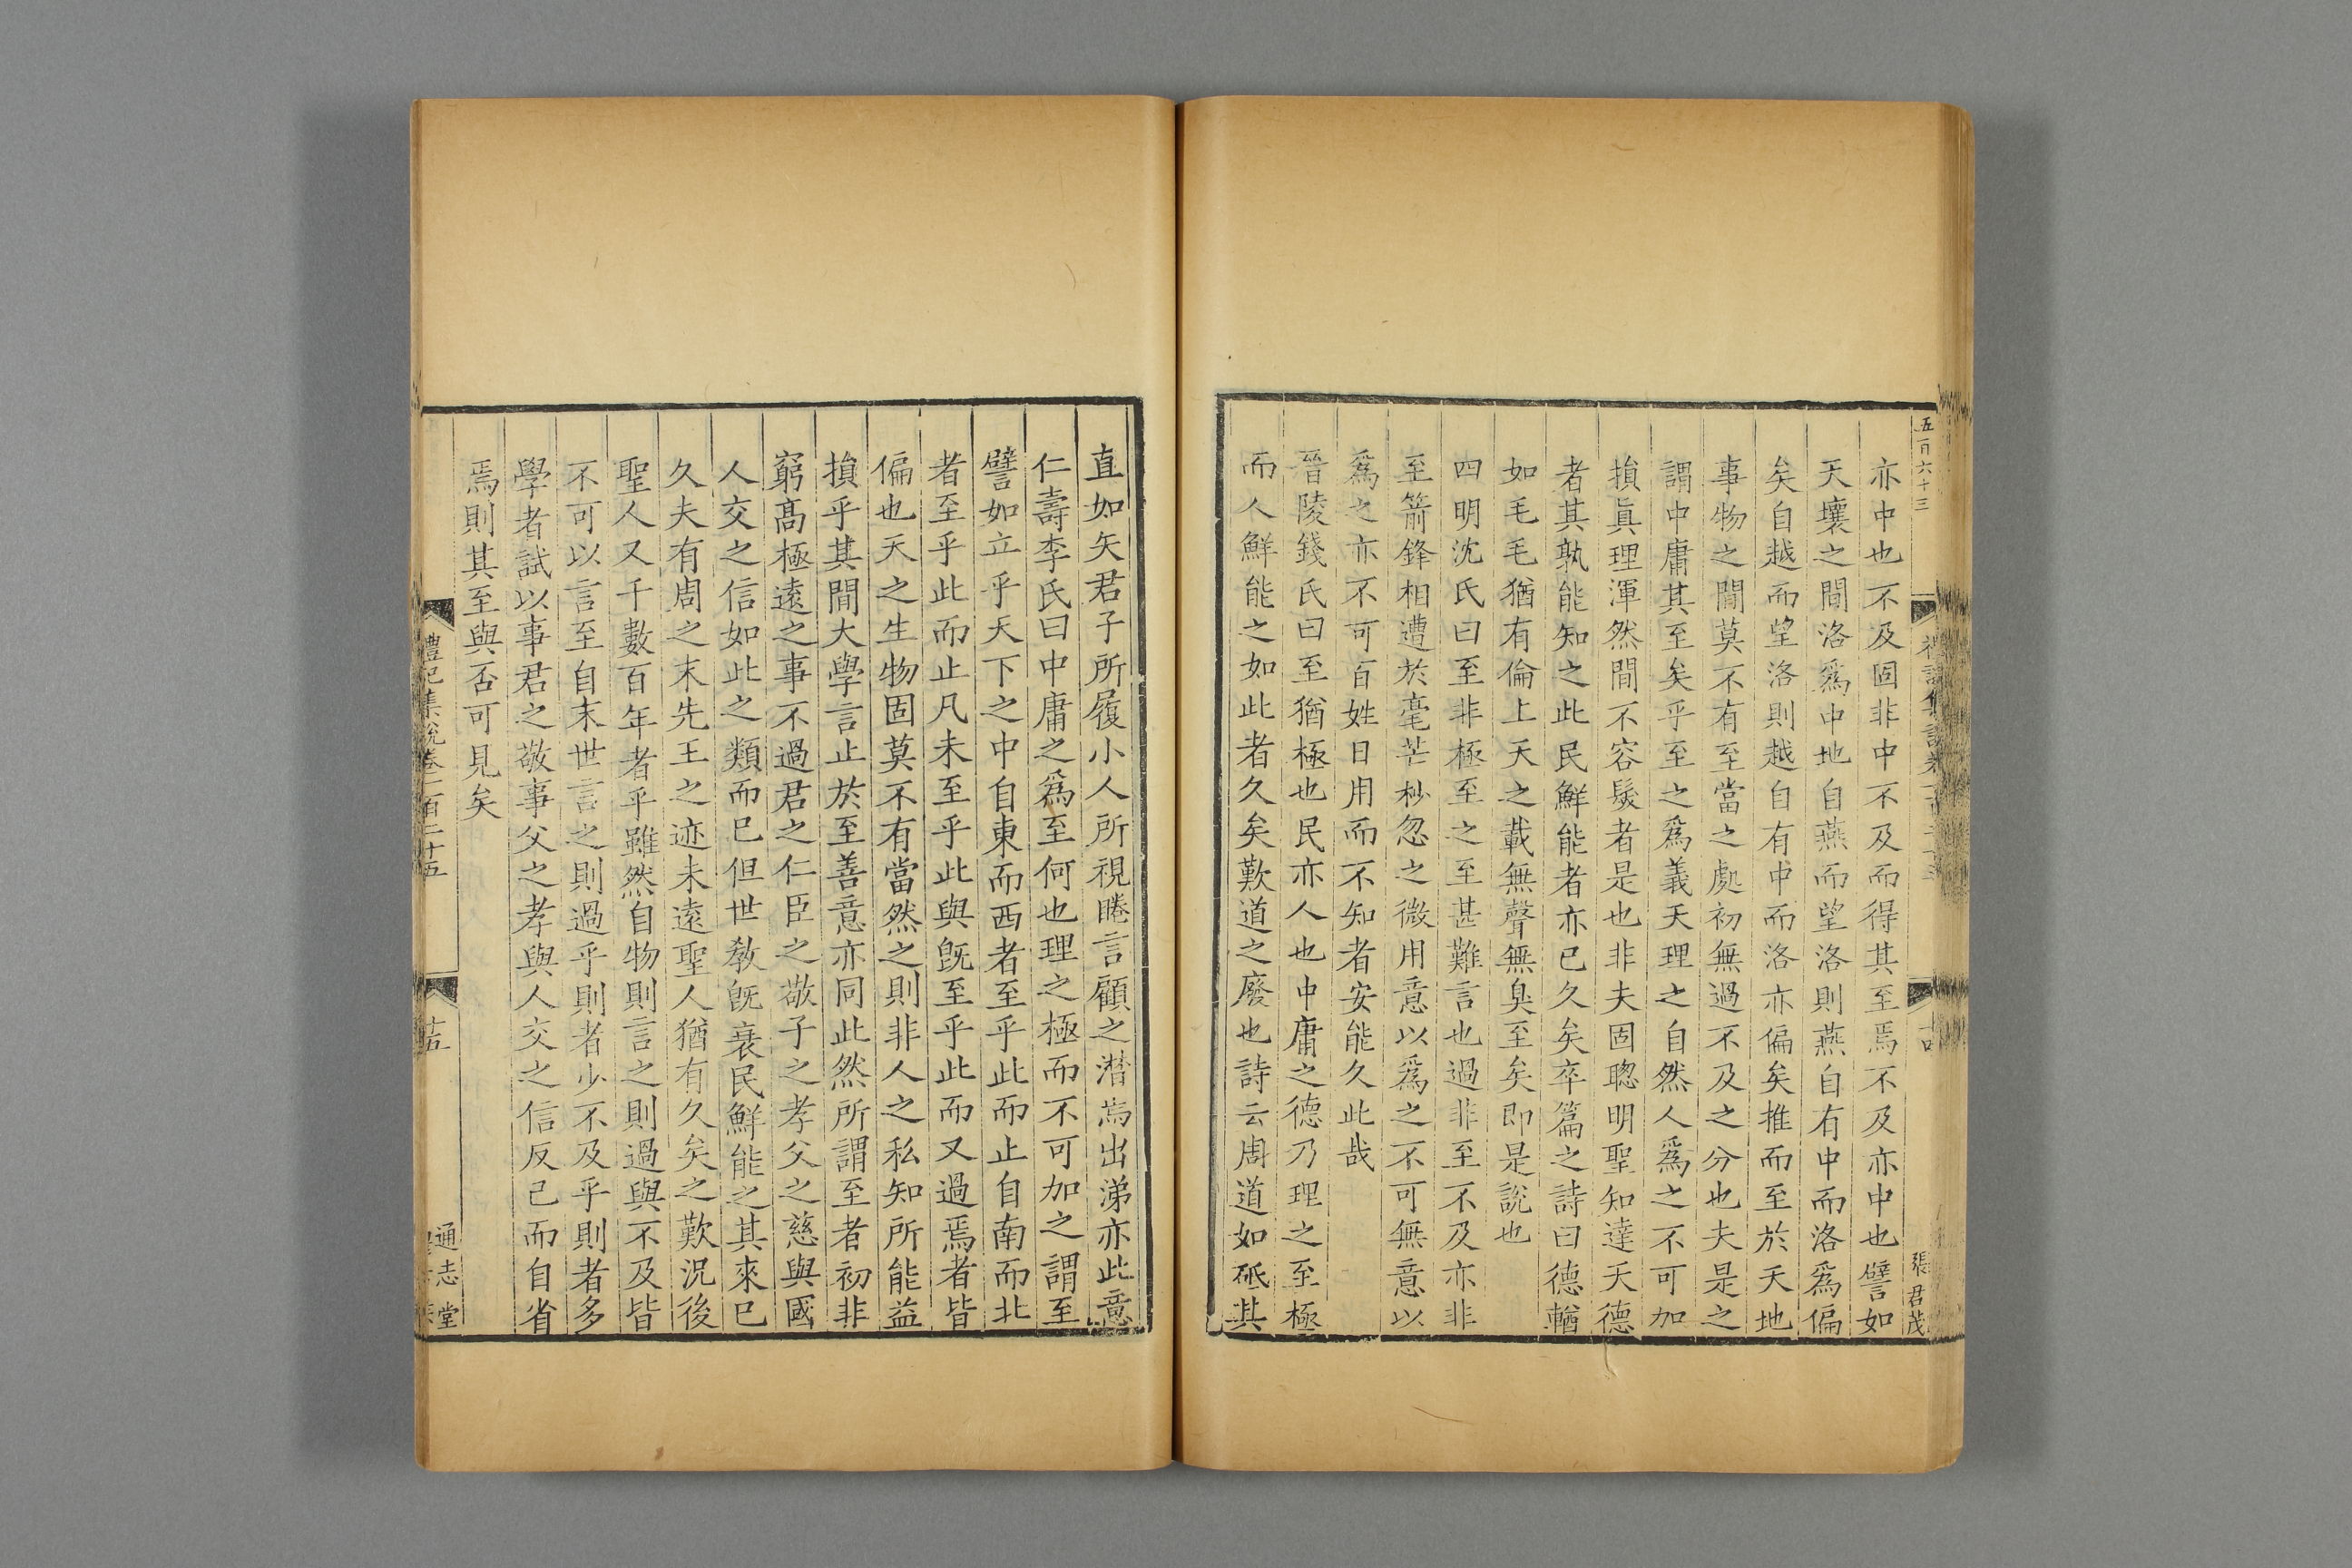 五百六十三
張君茂
亦中也不及固非中不及而得其至焉不及亦中也譬如
天壤之間洛爲中地自燕而望洛則燕自有中而洛爲偏
矣自越而望洛則越自有中而洛亦偏矣推而至於天地
事物之間莫不有至當之處初無過不及之分也夫是之
謂中庸其至矣乎至之爲義天理之自然人爲之不可加
損眞理渾然間不容髮者是也非夫固聦明聖知達天德
者其孰能知之此民鮮能者亦已久矣卒篇之詩曰德輶
如毛毛猶有倫上天之載無聲無臭至矣即是說也
四明沈氏曰至非極至之至甚難言也過非至不及亦非
至箭鋒相遭於毫芒杪忽之微用意以爲之不可無意以
爲之亦不可百姓日用而不知者安能久此哉
晉陵錢氏曰至猶極也民亦人也中庸之德乃理之至極
而人鮮能之如此者久矣歎道之廢也詩云周道如砥其
直如矢君子所履小人所視睠言顧之潸焉出涕亦此意
仁壽李氏曰中庸之爲至何也理之極而不可加之謂至
譬如立乎天下之中自東而西者至乎此而止自南而北
者至乎此而止凡未至乎此與旣至乎此而又過焉者皆
偏也天之生物固莫不有當然之則非人之私知所能益
損乎其間大學言止於至善意亦同此然所謂至者初非
窮髙極遠之事不過君之仁臣之敬子之孝父之慈與國
人交之信如此之類而已但世敎旣衰民鮮能之其來已
久夫有周之末先王之迹未遠聖人猶有久矣之歎況後
聖人又千數百年者乎雖然自物則言之則過與不及皆
不可以言至自末世言之則過乎則者少不及乎則者多
學者試以事君之敬事父之孝與人交之信反己而自省
焉則其至與否可見矣
禮記集說卷一百二十五
十五
通志堂